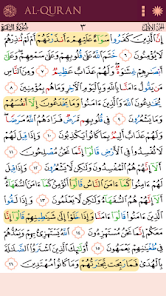 AL-QURAN
٣
إِنَّ ٱلَّذِينَ كَفَرُوا۟ سَوَآءٌ عَلَيْهِمْ ءَأَنذَرْتَهُمْ أَمْ لَمْ تُنذِرْهُمْ
لَا يُؤْمِنُونَ ٦ خَتَمَ ٱللَّهُ عَلَىٰ قُلُوبِهِمْ وَعَلَىٰ سَمْعِهِمْ وَعَلَىٰٓ
أَبْصَـٰرِهِمْ غِشَـٰوَةٌ وَلَهُمْ عَذَابٌ عَظِيمٌ ٧ وَمِنَ ٱلنَّاسِ
مَن يَقُولُ ءَامَنَّا بِٱللَّهِ وَبِٱلْيَوْمِ ٱلْـَٔاخِرِ وَمَا هُم بِمُؤْمِنِينَ ٨
يُخَـٰدِعُونَ ٱللَّهَ وَٱلَّذِينَ ءَامَنُوا۟ وَمَا يَخْدَعُونَ إِلَّآ أَنفُسَهُمْ
وَمَا يَشْعُرُونَ ٩ فِى قُلُوبِهِم مَّرَضٌ فَزَادَهُمُ ٱللَّهُ مَرَضًا
وَلَهُمْ عَذَابٌ أَلِيمٌۢ بِمَا كَانُوا۟ يَكْذِبُونَ ١٠ وَإِذَا قِيلَ لَهُمْ
لَا تُفْسِدُوا۟ فِى ٱلْأَرْضِ قَالُوٓا۟ إِنَّمَا نَحْنُ مُصْلِحُونَ ١١
أَلَآ إِنَّهُمْ هُمُ ٱلْمُفْسِدُونَ وَلَـٰكِن لَّا يَشْعُرُونَ ١٢ وَإِذَا قِيلَ
لَهُمْ ءَامِنُوا۟ كَمَآ ءَامَنَ ٱلنَّاسُ قَالُوٓا۟ أَنُؤْمِنُ كَمَآ ءَامَنَ ٱلسُّفَهَآءُ
أَلَآ إِنَّهُمْ هُمُ ٱلسُّفَهَآءُ وَلَـٰكِن لَّا يَعْلَمُونَ ١٣ وَإِذَا لَقُوا۟
ٱلَّذِينَ ءَامَنُوا۟ قَالُوٓا۟ ءَامَنَّا وَإِذَا خَلَوْا۟ إِلَىٰ شَيَـٰطِينِهِمْ قَالُوٓا۟
إِنَّا مَعَكُمْ إِنَّمَا نَحْنُ مُسْتَهْزِءُونَ ١٤ ٱللَّهُ يَسْتَهْزِئُ بِهِمْ
وَيَمُدُّهُمْ فِى طُغْيَـٰنِهِمْ يَعْمَهُونَ ١٥ أُو۟لَـٰٓئِكَ ٱلَّذِينَ ٱشْتَرَوُا۟ ٱلضَّلَـٰلَةَ
بِٱلْهُدَىٰ فَمَا رَبِحَت تِّجَـٰرَتُهُمْ وَمَا كَانُوا۟ مُهْتَدِينَ ١٦